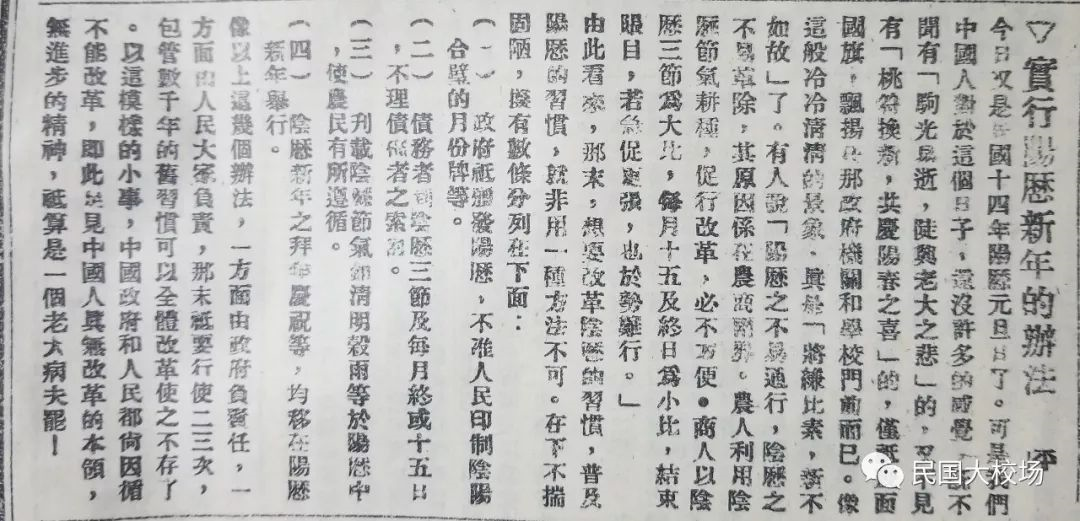 ▽實行陽歷新年的辦法
今日又是民國十四年陽歷元旦日了。可是我們
中國人對於這個日子，還沒許多的感覺，不
聞有「駒光易逝，徒興老大之悲」的，又見
有「桃符換新，共慶陽春之喜」的，僅祇面
國旗，飄揚在那政府機關和學校門前而已。像
這般冷冷清清的景象，眞是「將縑比素，新不
如故」了。有人說「陽歷之不易通行，陰歷之
不易革除，其原因係在農商兩界。農人利用陰
歷節氣耕種，促行改革，必不方便。商人以陰
歷三節爲大比，每月十五及終日爲小比，結束
賬目，若急促更張，也於勢難行。」
由此看來，那末，想要改革陰歷的習慣，普及
陽歷的習慣，就非用一種方法不可。在下不揣
固陋，擬有數條分列在下面：
（一）政府祇頒發陽歷，不准人民印制陰陽
合璧的月份牌等。
（二）債務者司陰歷三節及每月終或十五日
，不理債權者之索。
（三）刋載陰歷節氣如清明穀雨等於陽歷中
，使農民有所遵循。
（四）陰歷新年之拜年慶祝等，均移在陽歷
新年舉行。
像以上這幾個辦法，一方面由政府負責任，一
方面由人民大家負責，那末祗要行使二三次，
包管數千年的舊習慣可以全體改革使之不存了
。以這樣樣的小事，中國政府和人民都尙因循
不能改革，卽此足見中國人眞無改革的本領，
無進步的精神，祗算是一個老大病夫罷！
民国大校场